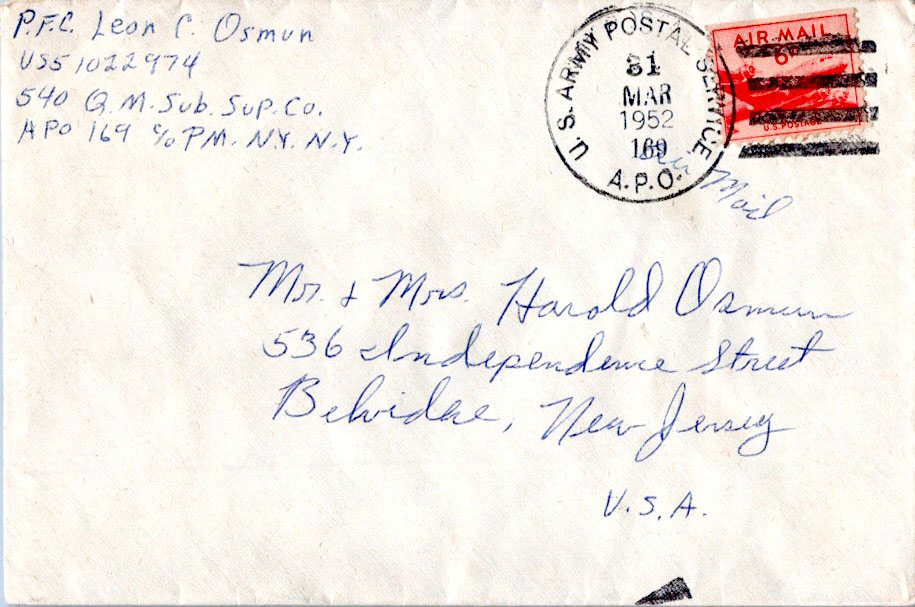 P.F.C. Leon C. Osmun
US51022974
540 Q.M. Sub. Sup. Co.
APO 169 c/o PM. N.Y. N.Y.
U.S. ARMY POSTAL SERVICE
31
MAR
1952
169
A.P.O.
AIR MAIL
6¢
U.S. POSTAGE
Air Mail
Mr. & Mrs. Harold Osmun
536 Independence Street
Belvidere, New Jersey
U.S.A.